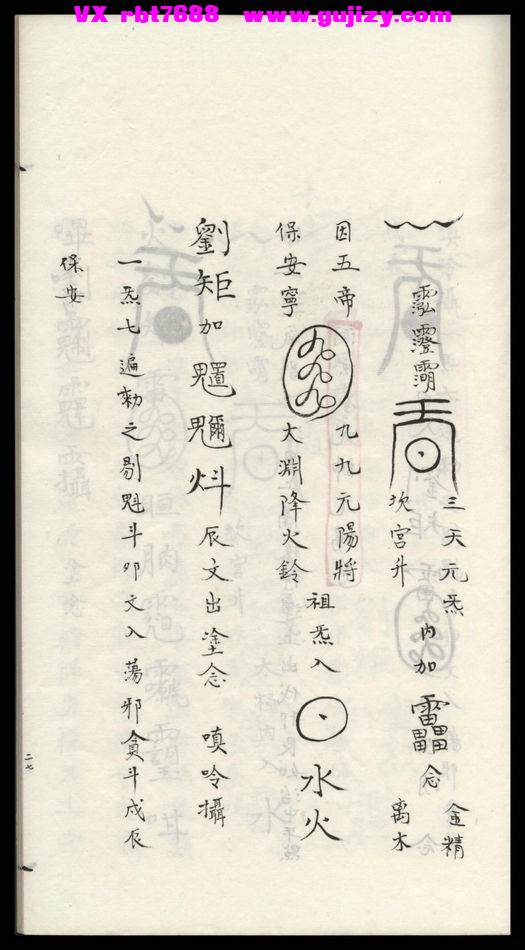 VX rbt7688 www.gujizy.com
三天元炁
金精
坎宫升
内加
念
离木
因五帝
九九元陽將
保安寧
大淵降火鈴
祖炁入
水火
劉矩加
辰文出塗念
嗔呤攝
一炁七遍勑之剔魁斗卯文入
蕩邪貪斗戍辰
保安
二七